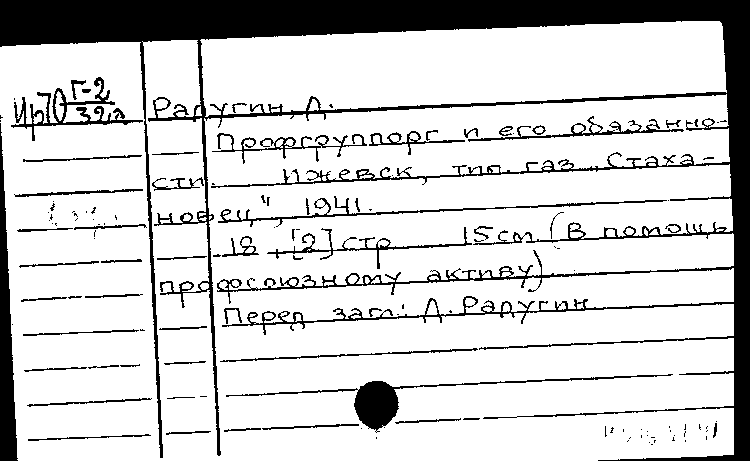 Ир70 Г-2
32л
Радугин, Д.
Профгруппорг и его обязанно-
сти. Ижевск, тип. газ „Стаха-
новец", 1941.
18 + [2] стр 15 см (В помощь
профсоюзному активу)
Перед загл: Д. Радугин